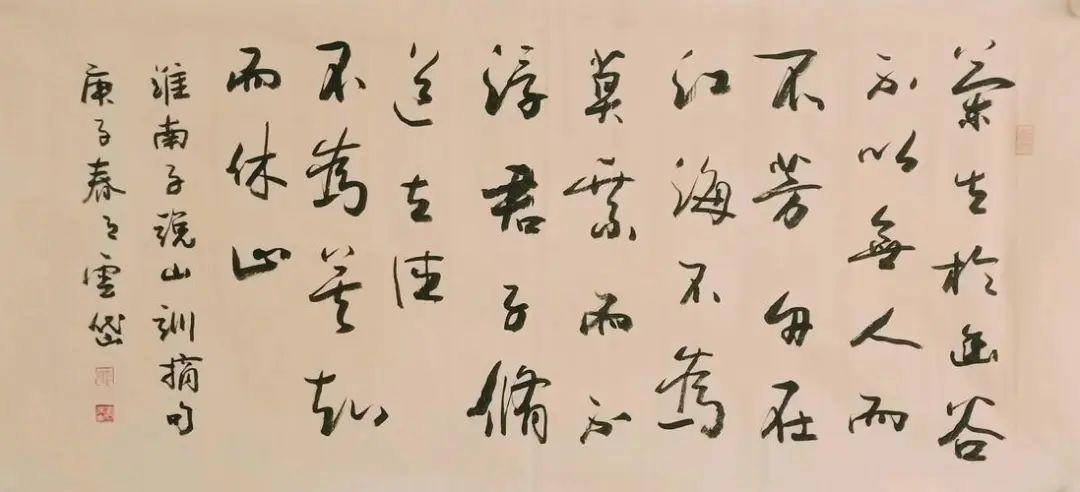 蘭生於幽谷
不以無人而
不芳舟在
江海不為
莫乘而不
浮君子脩
道立德
不為莫知
而休止
淮南子說山訓摘句
庚子春雲岱